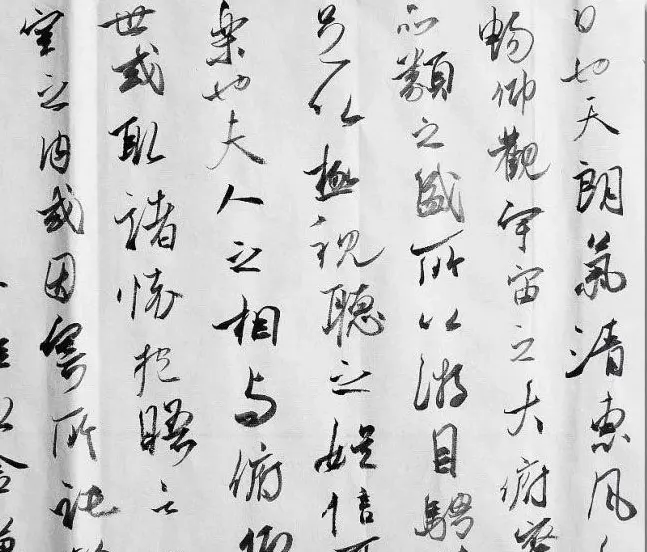 日也天朗氣清惠風
暢仰觀宇宙之大俯察
品類之盛所以游目騁
足以極視聽之娛信可
樂也夫人之相與俯仰
世或取諸懷抱晤言
室之內或因寄所託
雖趣舍